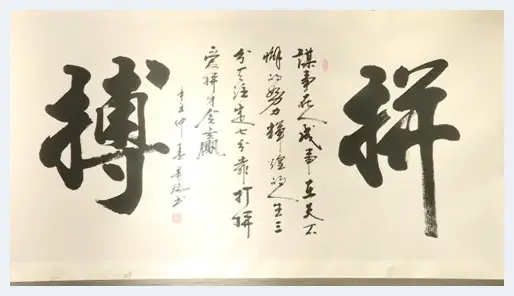 拼
謀事在人成事在天不
懈的努力輝煌的人生三
分天注定七分靠打拼
爱拼才会贏
辛丑仲春书
搏